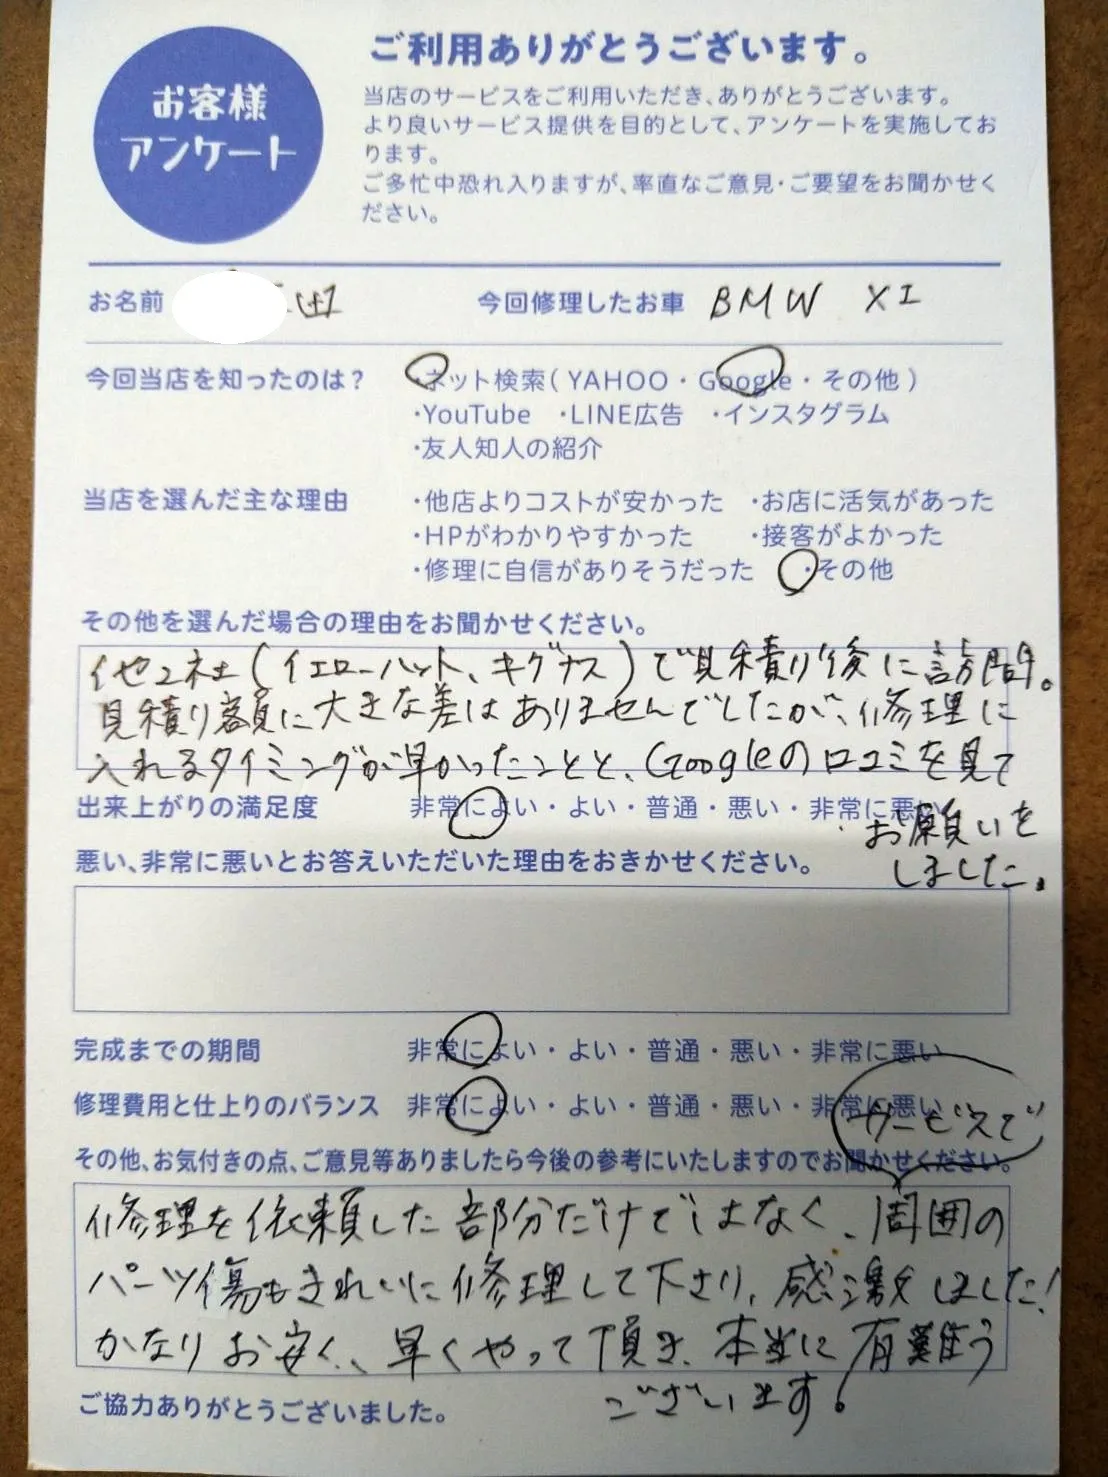 お客様
アンケート
ご利用ありがとうございます。
当店のサービスをご利用いただき、ありがとうございます。
より良いサービス提供を目的として、アンケートを実施してお
ります。
ご多忙中恐れ入りますが、率直なご意見・ご要望をお聞かせく
ださい。
お名前 今回修理したお車 BMW X1
今回当店を知ったのは? ・ネット検索( YAHOO・Google・その他 )
・YouTube ・LINE広告 ・インスタグラム
・友人知人の紹介
当店を選んだ主な理由 ・他店よりコストが安かった ・お店に活気があった
・HPがわかりやすかった ・接客がよかった
・修理に自信がありそうだった ・その他
その他を選んだ場合の理由をお聞かせください。
他2社(イエローハット、キグナス)で見積り後に訪問。
見積り額に大きな差はありませんでしたが、修理に
入れるタイミングが早かったことと、Googleの口コミを見て
お願いを
しました。
出来上がりの満足度 非常によい・よい・普通・悪い・非常に悪い
悪い、非常に悪いとお答えいただいた理由をおきかせください。
完成までの期間 非常によい・よい・普通・悪い・非常に悪い
修理費用と仕上りのバランス 非常によい・よい・普通・悪い・非常に悪い
その他、お気付きの点、ご意見等ありましたら今後の参考にいたしますのでお聞かせください。
サービスで
修理を依頼した部分だけではなく、周囲の
パーツ傷もきれいに修理して下さり、感激しました!
かなりお安く、早くやって頂き、本当に有難う
ございます。
ご協力ありがとうございました。